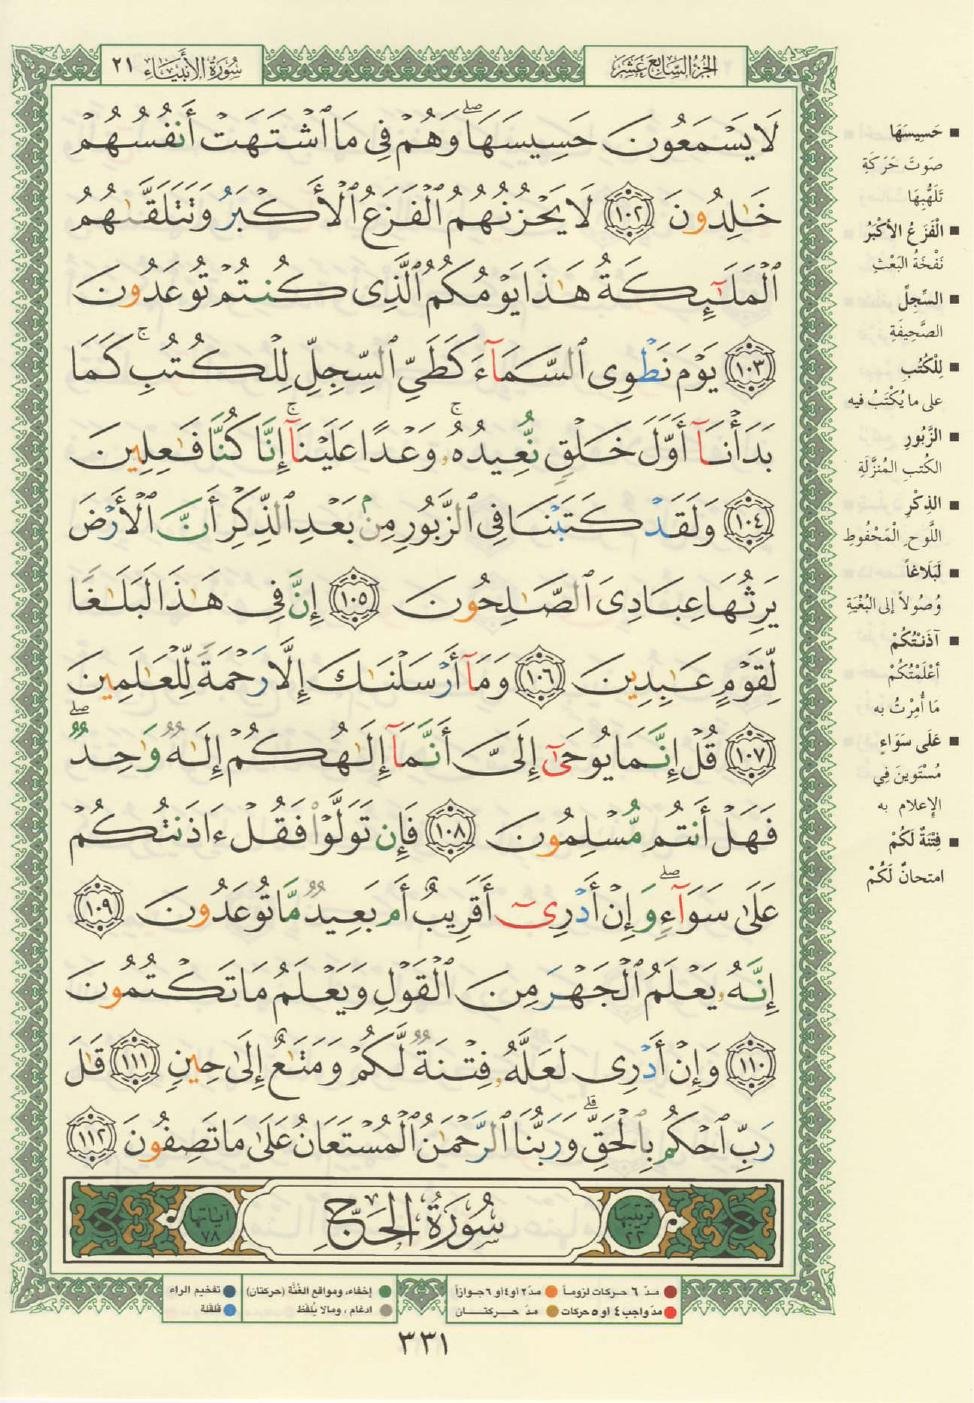 سُورَةُ الأَنبيَاء ٢١
الجزء السَّابع عَشَر
لَا يَسْمَعُونَ حَسِيسَهَا ۖ وَهُمْ فِى مَا ٱشْتَهَتْ أَنفُسُهُمْ
خَٰلِدُونَ ١٠٢ لَا يَحْزُنُهُمُ ٱلْفَزَعُ ٱلْأَكْبَرُ وَتَتَلَقَّىٰهُمُ
ٱلْمَلَٰٓئِكَةُ هَٰذَا يَوْمُكُمُ ٱلَّذِى كُنتُمْ تُوعَدُونَ
١٠٣ يَوْمَ نَطْوِى ٱلسَّمَآءَ كَطَىِّ ٱلسِّجِلِّ لِلْكُتُبِ ۚ كَمَا
بَدَأْنَآ أَوَّلَ خَلْقٍ نُّعِيدُهُۥ ۚ وَعْدًا عَلَيْنَآ ۚ إِنَّا كُنَّا فَٰعِلِينَ
١٠٤ وَلَقَدْ كَتَبْنَا فِى ٱلزَّبُورِ مِنۢ بَعْدِ ٱلذِّكْرِ أَنَّ ٱلْأَرْضَ
يَرِثُهَا عِبَادِىَ ٱلصَّٰلِحُونَ ١٠٥ إِنَّ فِى هَٰذَا لَبَلَٰغًا
لِّقَوْمٍ عَٰبِدِينَ ١٠٦ وَمَآ أَرْسَلْنَٰكَ إِلَّا رَحْمَةً لِّلْعَٰلَمِينَ
١٠٧ قُلْ إِنَّمَا يُوحَىٰٓ إِلَىَّ أَنَّمَآ إِلَٰهُكُمْ إِلَٰهٌ وَٰحِدٌ ۖ
فَهَلْ أَنتُم مُّسْلِمُونَ ١٠٨ فَإِن تَوَلَّوْا۟ فَقُلْ ءَاذَنتُكُمْ
عَلَىٰ سَوَآءٍ ۖ وَإِنْ أَدْرِىٓ أَقَرِيبٌ أَم بَعِيدٌ مَّا تُوعَدُونَ ١٠٩
إِنَّهُۥ يَعْلَمُ ٱلْجَهْرَ مِنَ ٱلْقَوْلِ وَيَعْلَمُ مَا تَكْتُمُونَ
١١٠ وَإِنْ أَدْرِى لَعَلَّهُۥ فِتْنَةٌ لَّكُمْ وَمَتَٰعٌ إِلَىٰ حِينٍ ١١١ قَٰلَ
رَبِّ ٱحْكُم بِٱلْحَقِّ ۗ وَرَبُّنَا ٱلرَّحْمَٰنُ ٱلْمُسْتَعَانُ عَلَىٰ مَا تَصِفُونَ ١١٢
ترتيبها ٢٢ سُورَةُ الحَجِّ آياتها ٧٨
حَسِيسَهَا
صَوتَ حَرَكَةِ
تَلَهُّبِهَا
الْفَزَعُ الأكْبَرُ
نَفْخَةُ البَعْثِ
السِّجِلِّ
الصَّحِيفَةِ
لِلْكُتُبِ
على ما يُكْتَبُ فيه
الزَّبُورِ
الكتبِ المُنزَّلَةِ
الذِكْرِ
اللَّوحِ الْمَحْفُوظِ
لَبَلاغاً
وُصُولاً إلى البُغْيَةِ
آذَنْتُكُمْ
أعْلَمْتُكُمْ
مَا أُمِرْتُ به
عَلَى سَوَاءٍ
مُسْتَوِينَ فِي
الإعلام به
فِتْنَةٌ لَكُمْ
امتحانٌ لَكُمْ
مدّ ٦ حركات لزوماً
مدّ ٢ أو ٤ أو ٦ جوازاً
إخفاء، ومواقع الغُنَّة (حركتان)
تفخيم الراء
مدّ واجب ٤ أو ٥ حركات
مدّ حركتان
ادغام ، ومالا يُلفَظ
قلقلة
٣٣١